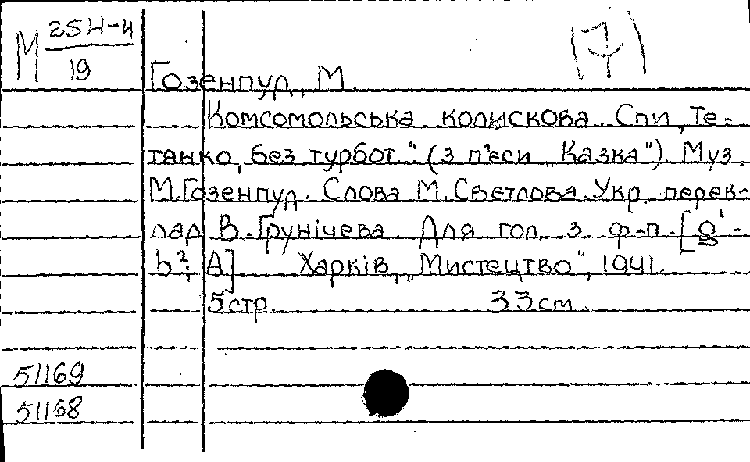 М 25Н-4
19
(7)
Гозенпуд, М.
Комсомольська колискова. Спи, Те-
танко, без турбот." (З п'єси „Казка"). Муз.
М.Гозенпуд. Слова М.Свєтлова. Укр. перек-
лад В. Грунічева. Для гол. з ф-п. [g' -
h²; A] Харків, „Мистецтво", 1941.
5 стр. 33 см.
51169
51168